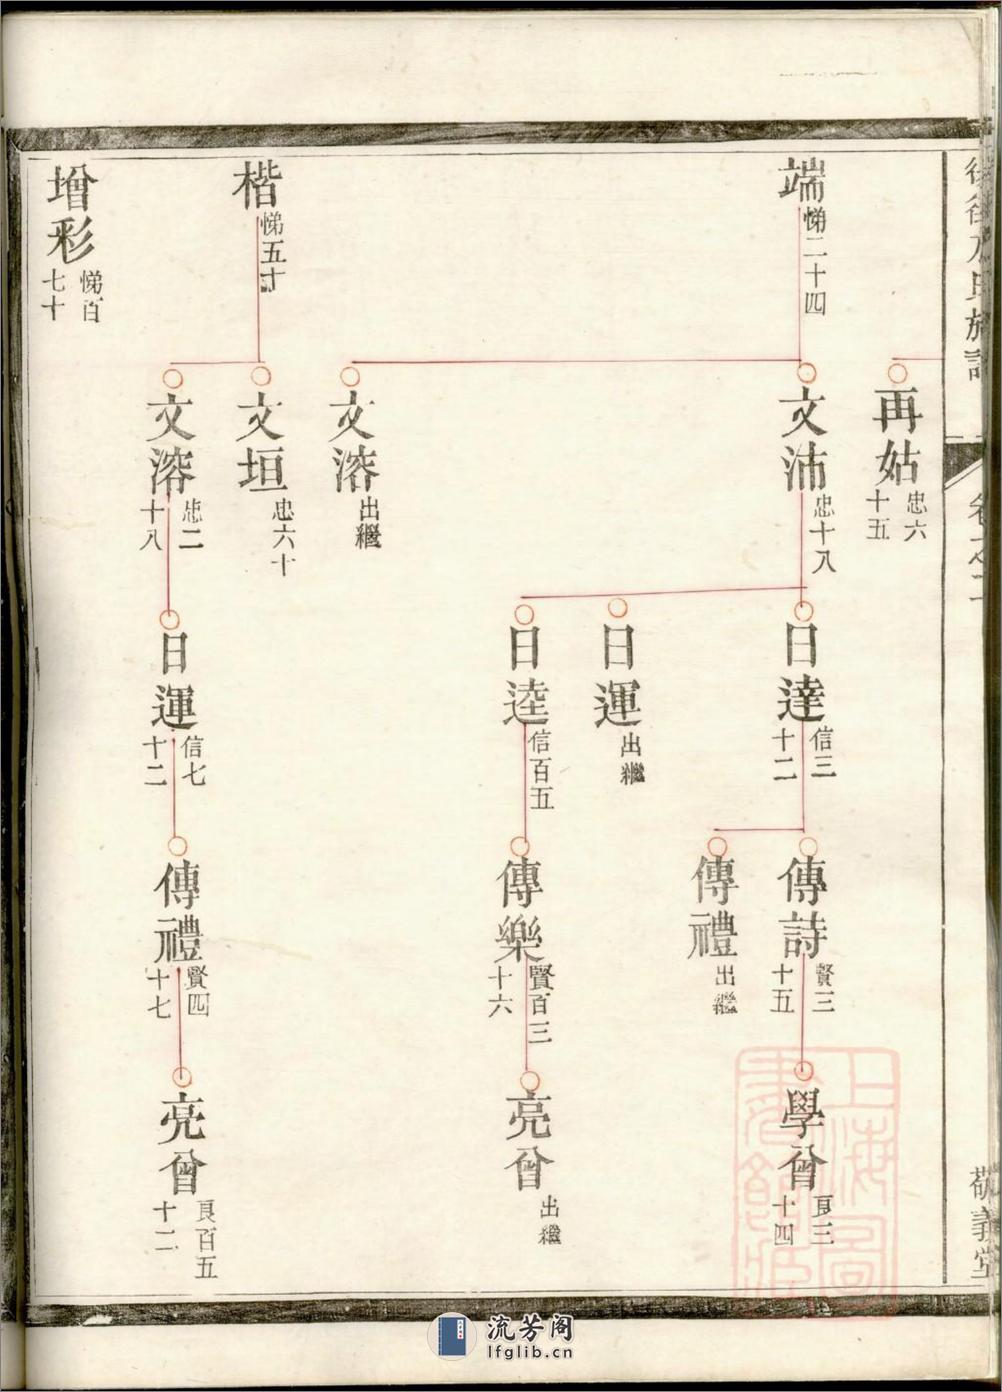 敬義堂
再姑
忠六十五
端
悌二十四
文沛
忠十八
日達
信三十二
傳詩
賢三十五
學曾
良三十四
傳禮
出繼
日運
出繼
日逵
信百五
傳樂
賢百三十六
亮曾
出繼
文溶
出繼
楷
悌五十
文垣
忠六十
文溶
忠二十八
日運
信七十二
傳禮
賢四十七
亮曾
良百五十二
增彩
悌百七十
上海圖書館藏
流芳阁
lfglib.cn